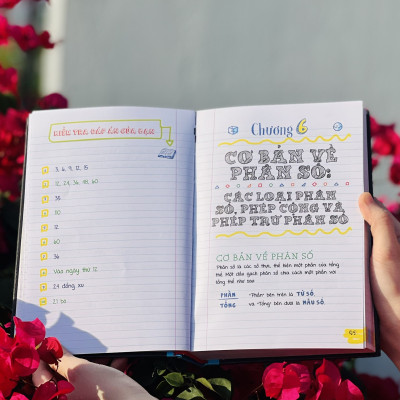 KIỂM TRA ĐÁP ÁN CỦA BẠN
3, 6, 9, 12, 15
12, 24, 36, 48, 60
30
12
60
36
Vào ngày thứ 12
24 đồng xu
Chương 6
CƠ BẢN VỀ
PHÂN SỐ:
CÁC LOẠI PHÂN
SỐ, PHÉP CỘNG VÀ
PHÉP TRỪ PHÂN SỐ
CƠ BẢN VỀ PHÂN SỐ
Phân số là các số thực, thể hiện một phần của tổng
thể. Một dấu gạch phân số chia cách một phần với
tổng thể như sau:
PHẦN
TỔNG
-Phần- bên trên là TỬ SỐ
và -Tổng- bên dưới là MẪU SỐ